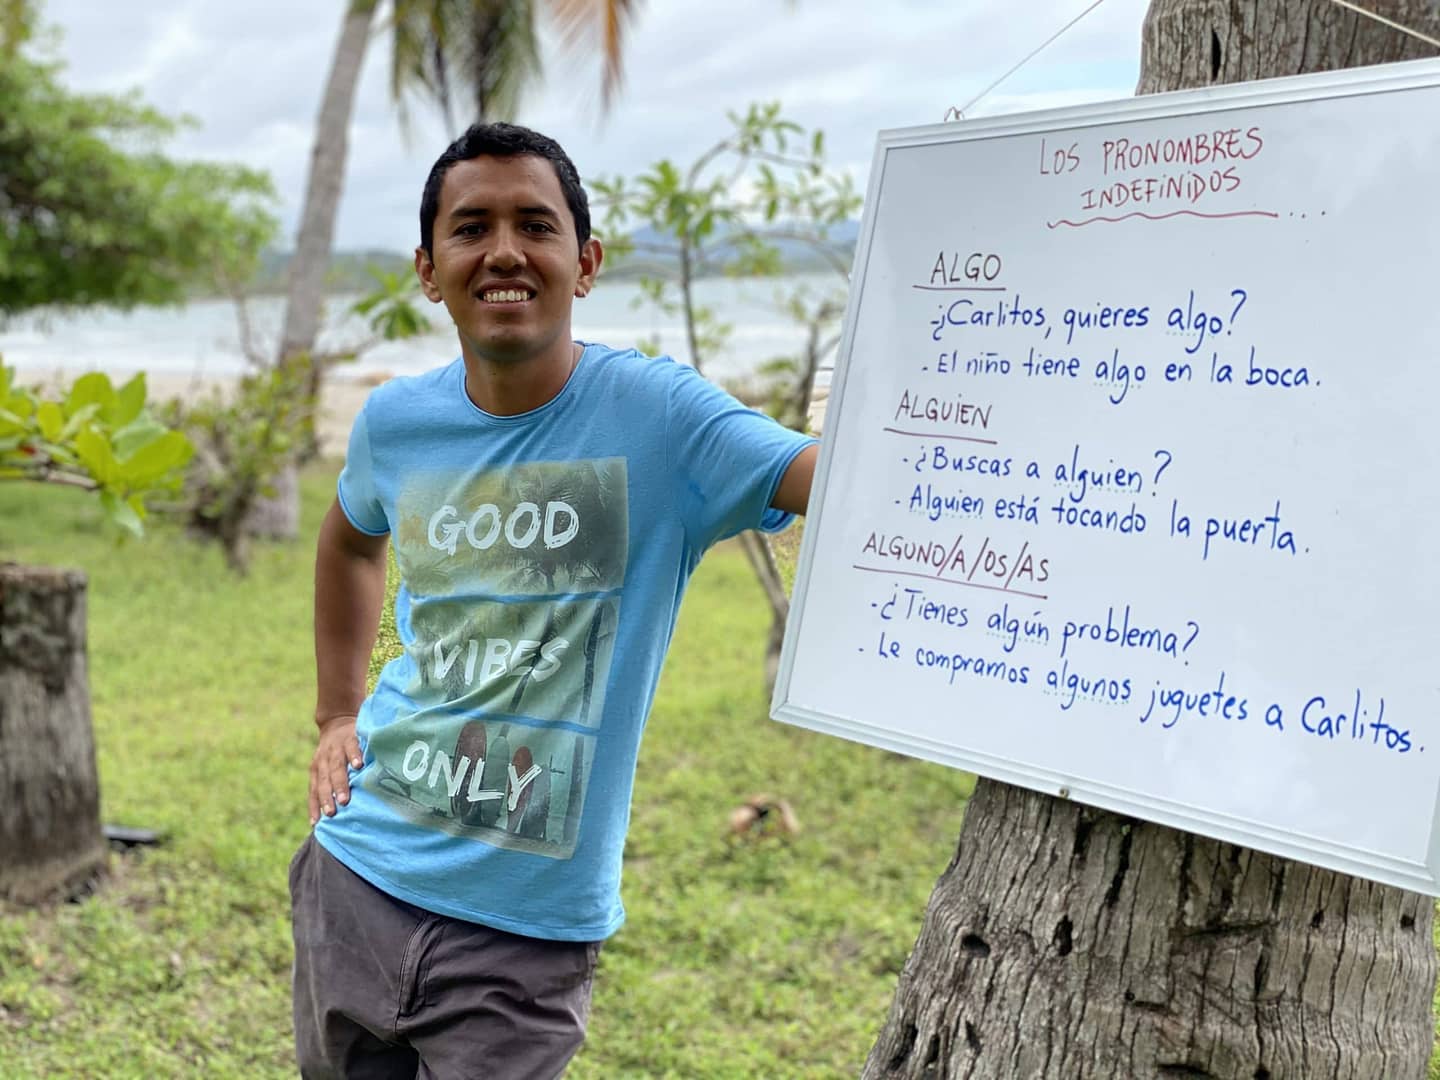 LOS PRONOMBRES
INDEFINIDOS ...
ALGO
-¿Carlitos, quieres algo?
. El niño tiene algo en la boca.
ALGUIEN
. ¿Buscas a alguien?
. Alguien está tocando la puerta.
ALGUNO/A/OS/AS
. ¿Tienes algún problema?
. Le compramos algunos juguetes a Carlitos.
GOOD
VIBES
ONLY